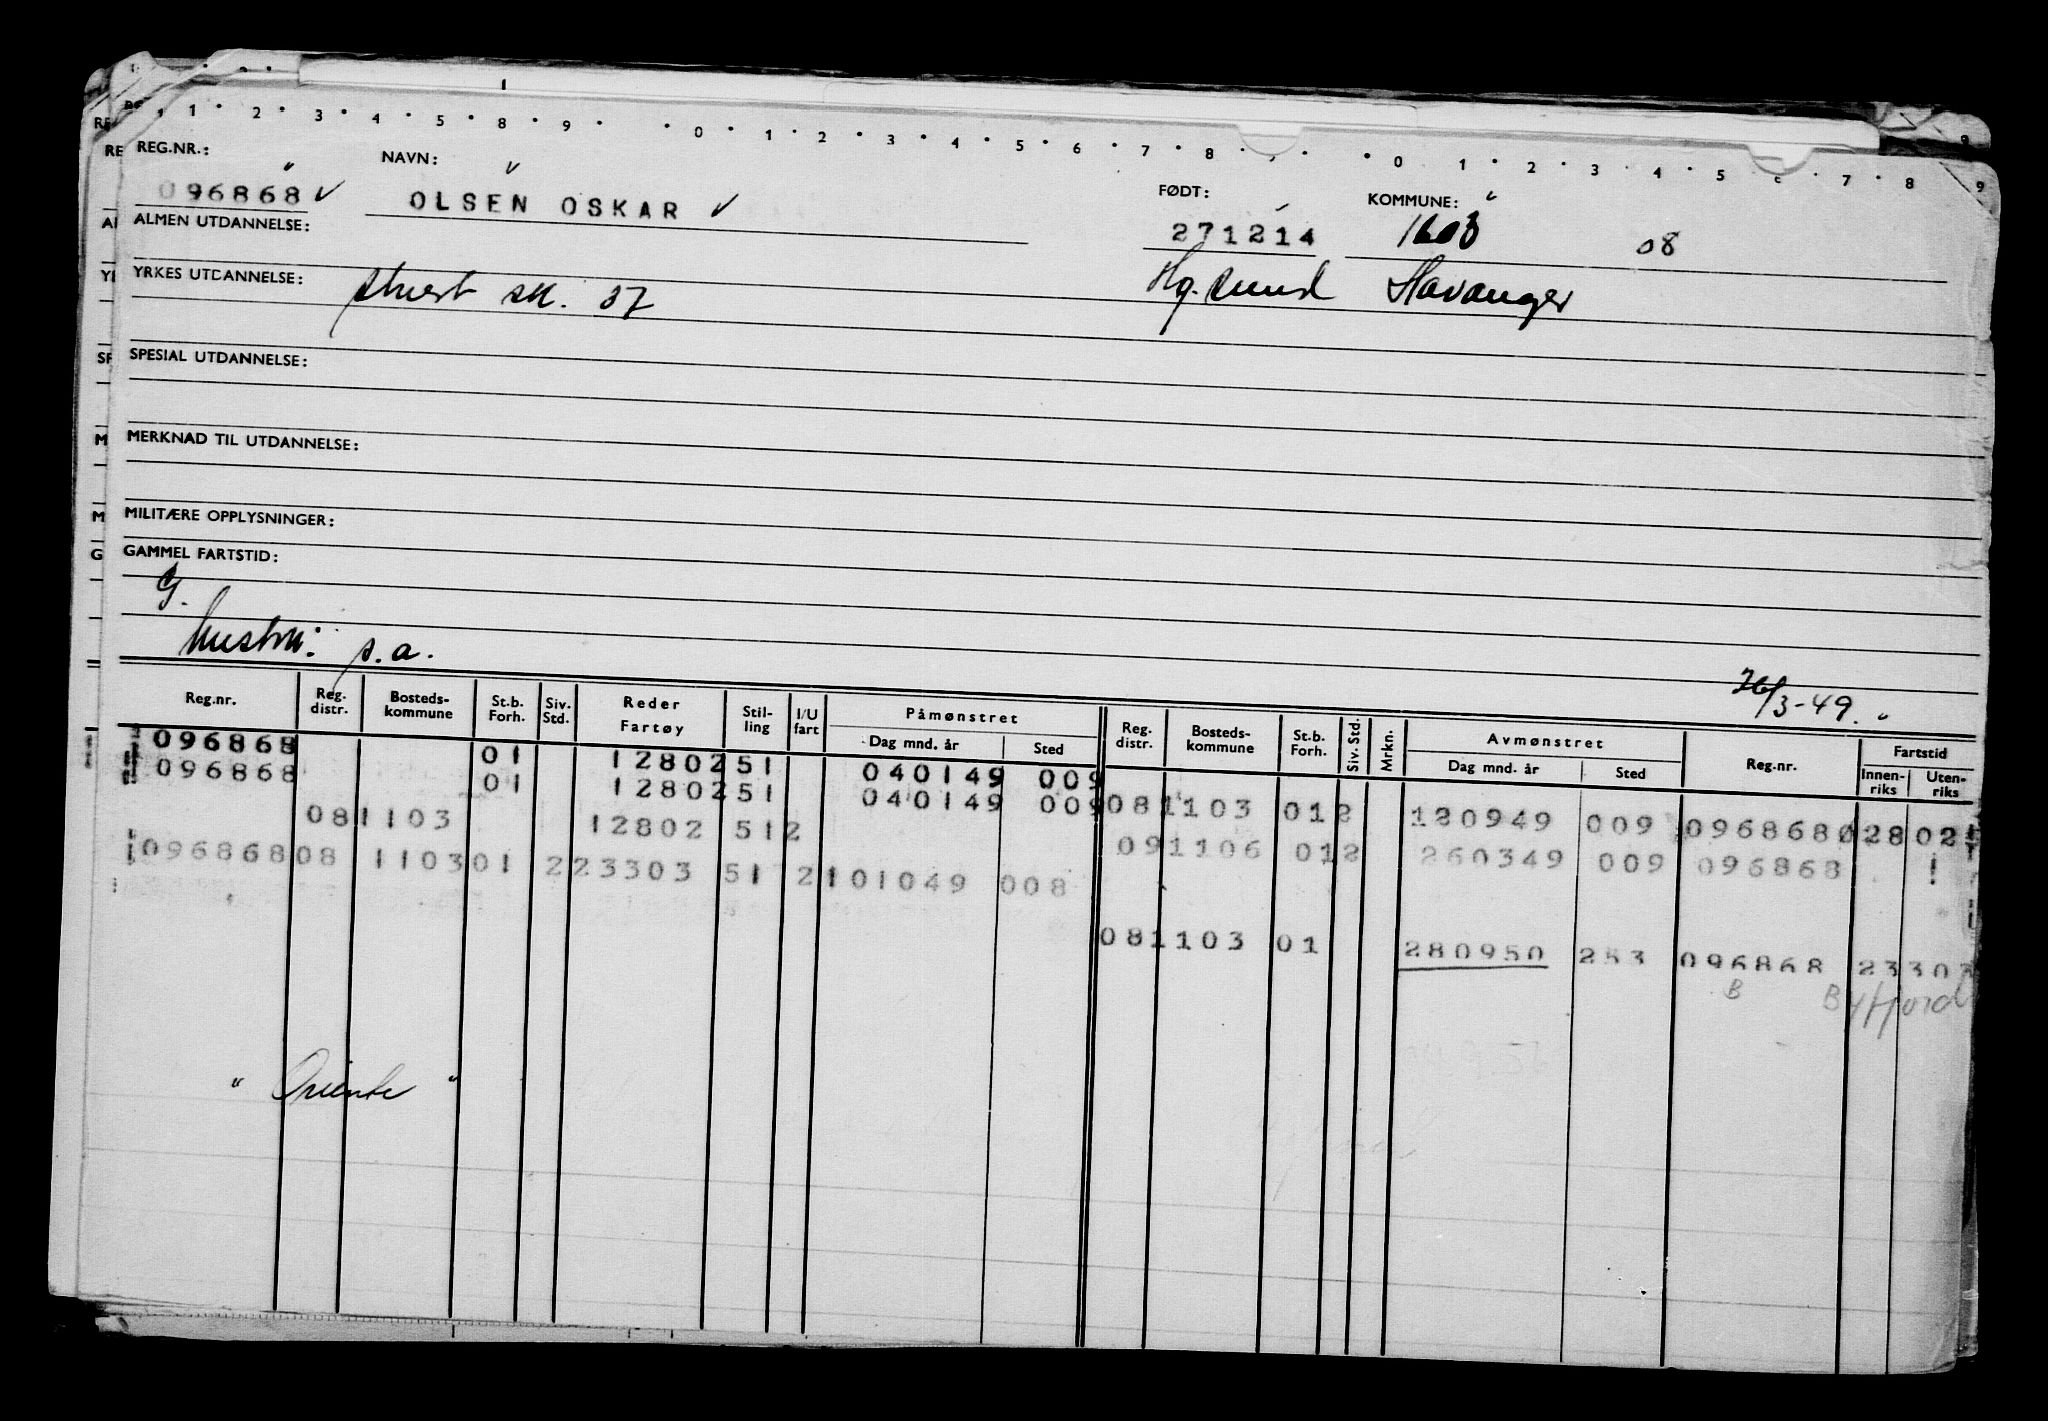 1 2 3 4 5 8 9 0 1 2 3 4 5 6 7 8 0 1 2 3 4 5 7 8 9
REG.NR.: NAVN: FØDT: KOMMUNE:
096868 OLSEN OSKAR 271214 08
ALMEN UTDANNELSE:
YRKES UTDANNELSE: stuert sk. 37 Hg.sund Stavanger
SPESIAL UTDANNELSE:
MERKNAD TIL UTDANNELSE:
MILITÆRE OPPLYSNINGER:
GAMMEL FARTSTID:
G.
hustru: s.a.
26/3-49.
Reg.nr. Reg. distr. Bosteds-kommune St.b. Forh. Siv. Std. Reder Fartøy Stil-ling I/U fart Påmønstret Reg. distr. Bosteds-kommune St.b. Forh. Siv. Std. Mrkn. Avmønstret Reg.nr. Fartstid
Dag mnd. år Sted Dag mnd. år Sted Innen-riks Uten-riks
096868 01 12802 51 040149 009
096868 01 12802 51 040149 009 08 1103 01 2 120949 009 096868 0 28 02
08 1103 12802 51 2 09 1106 01 2 260349 009 096868
096868 08 1103 01 2 23303 51 2 101049 008
08 1103 01 280950 253 096868 23303
B Byfjord
" Oriente "